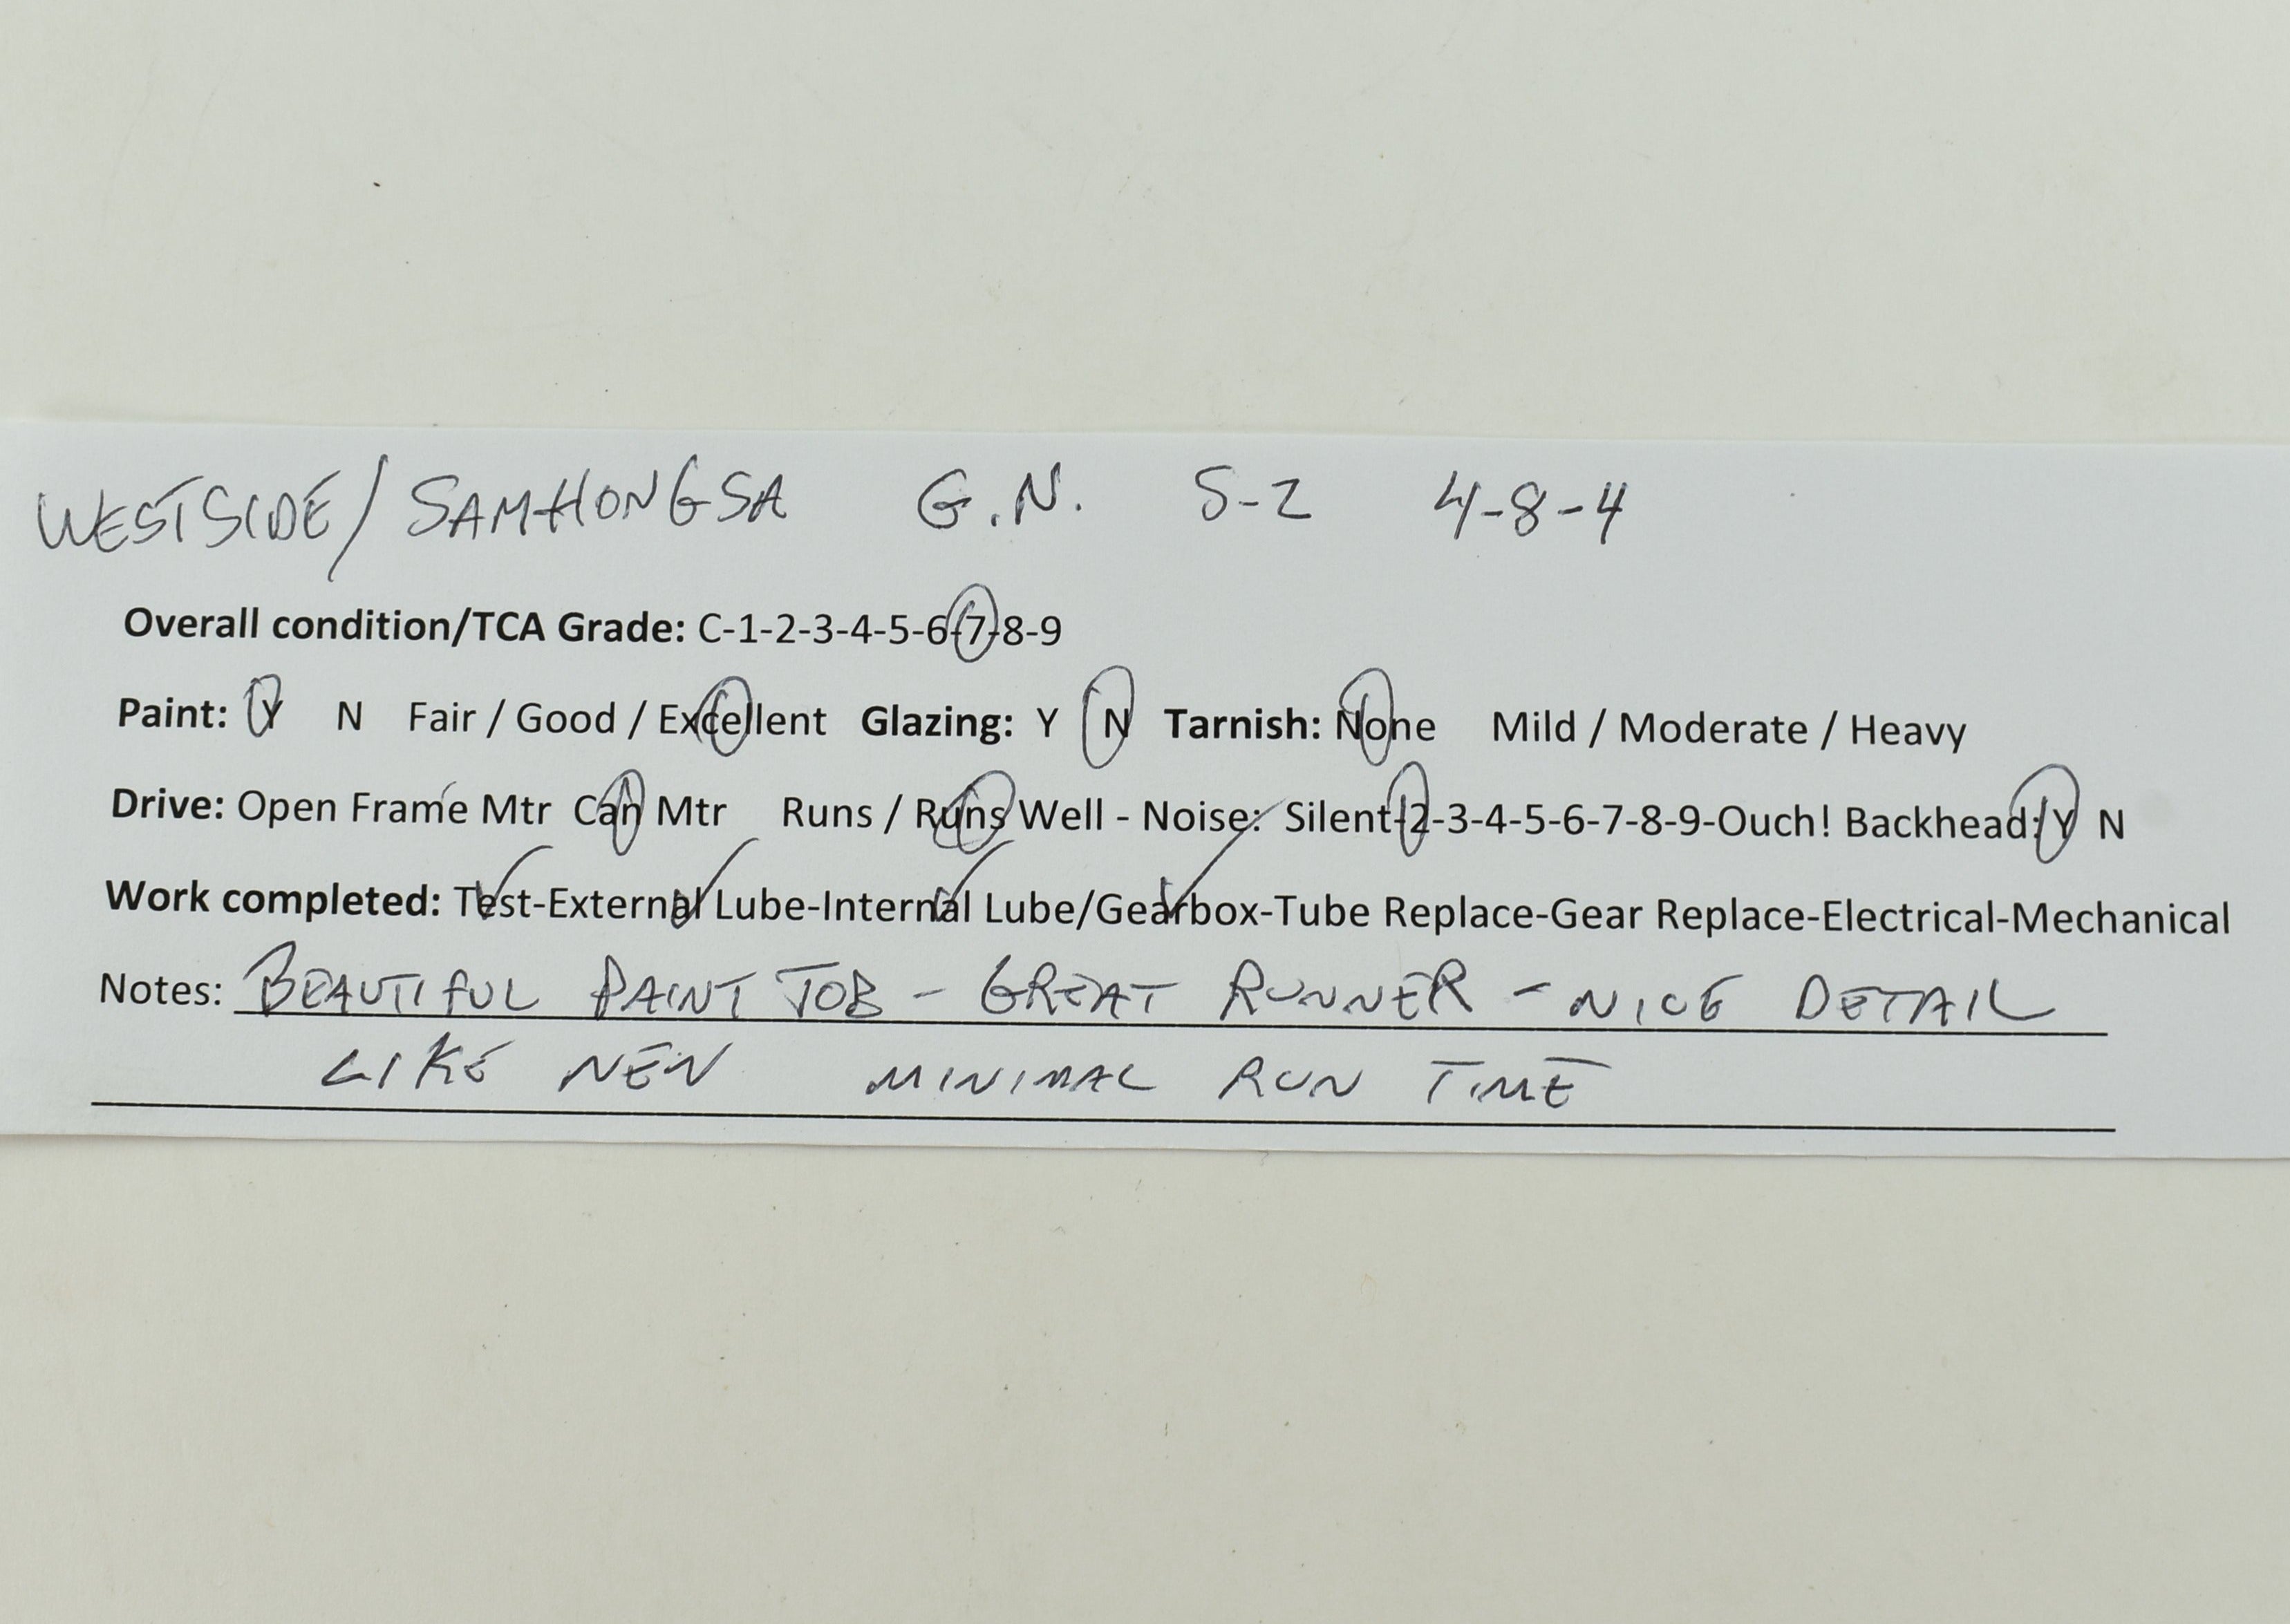 WESTSIDE/SAMHONGSA G.N. S-2 4-8-4
Overall condition/TCA Grade: C-1-2-3-4-5-6-7-8-9
Paint: Y N Fair / Good / Excellent Glazing: Y N Tarnish: None Mild / Moderate / Heavy
Drive: Open Frame Mtr Can Mtr Runs / Runs Well - Noise: Silent-2-3-4-5-6-7-8-9-Ouch! Backhead: Y N
Work completed: Test-External Lube-Internal Lube/Gearbox-Tube Replace-Gear Replace-Electrical-Mechanical
Notes: BEAUTIFUL PAINT JOB - GREAT RUNNER - NICE DETAIL
LIKE NEW MINIMAL RUN TIME